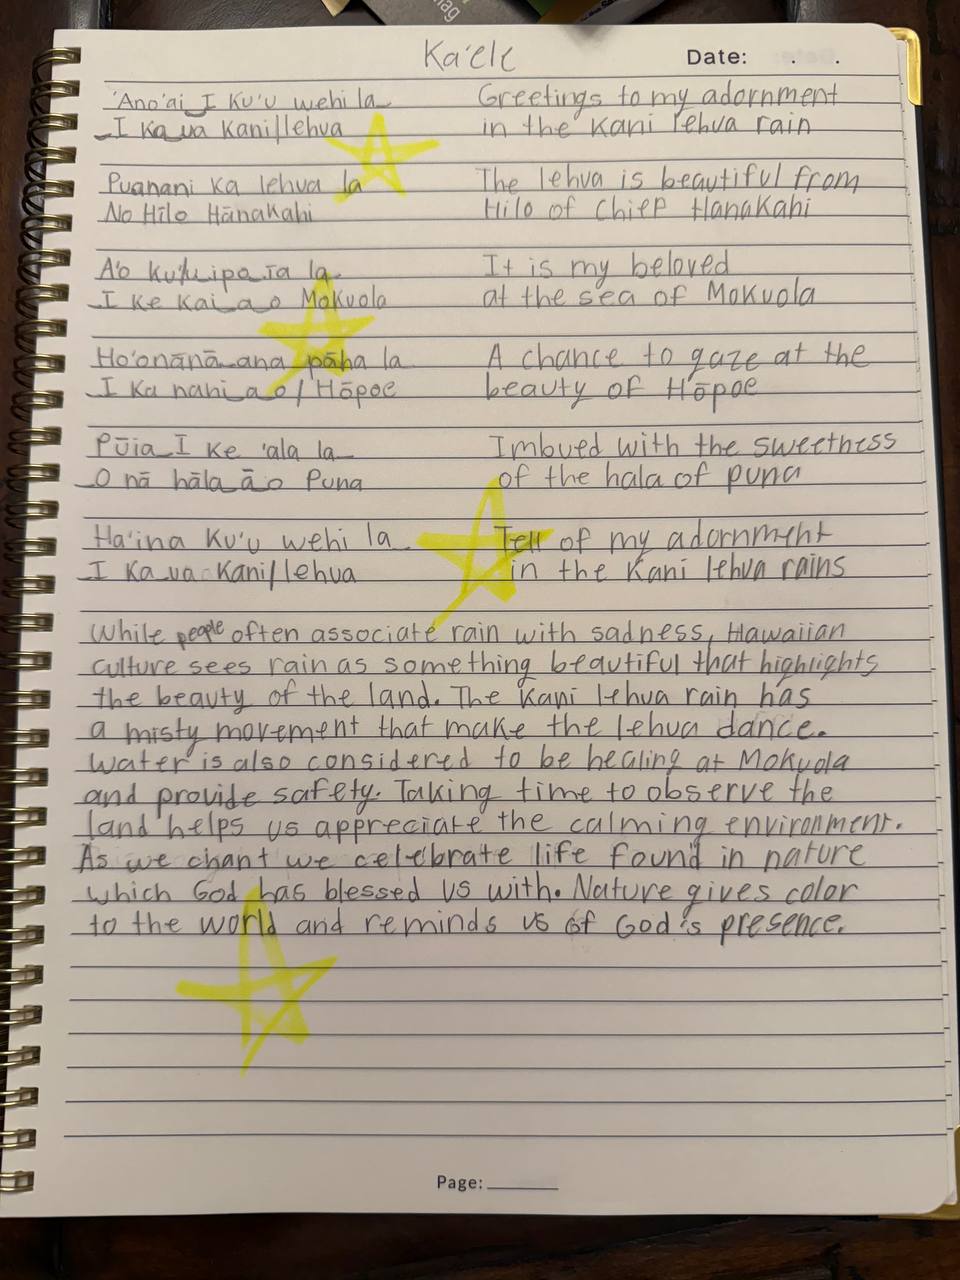 Ka'ele
Date: . .
'Ano'ai I Ku'u wehi la
I Ka ua Kani/lehua
Greetings to my adornment
in the Kani lehua rain
Puanani Ka lehua la
No Hilo Hānakahi
The lehua is beautiful from
Hilo of Chief Hanakahi
A'o ku'u ipo ia la
I Ke Kai a o Mokuola
It is my beloved
at the sea of Mokuola
Ho'onānā ana pāha la
I Ka nani a o/Hōpoe
A chance to gaze at the
beauty of Hōpoe
Pūia I Ke 'ala la
O nā hāla āo Puna
Imbued with the sweetness
of the hala of puna
Ha'ina Ku'u wehi la
I Ka ua Kani/lehua
Tell of my adornment
in the Kani lehua rains
While people often associate rain with sadness, Hawaiian
culture sees rain as something beautiful that highlights
the beauty of the land. The Kani lehua rain has
a misty movement that make the lehua dance.
Water is also considered to be healing at Mokuola
and provide safety. Taking time to observe the
land helps us appreciate the calming environment.
As we chant we celebrate life found in nature
which God has blessed us with. Nature gives color
to the world and reminds us of God's presence.
Page: